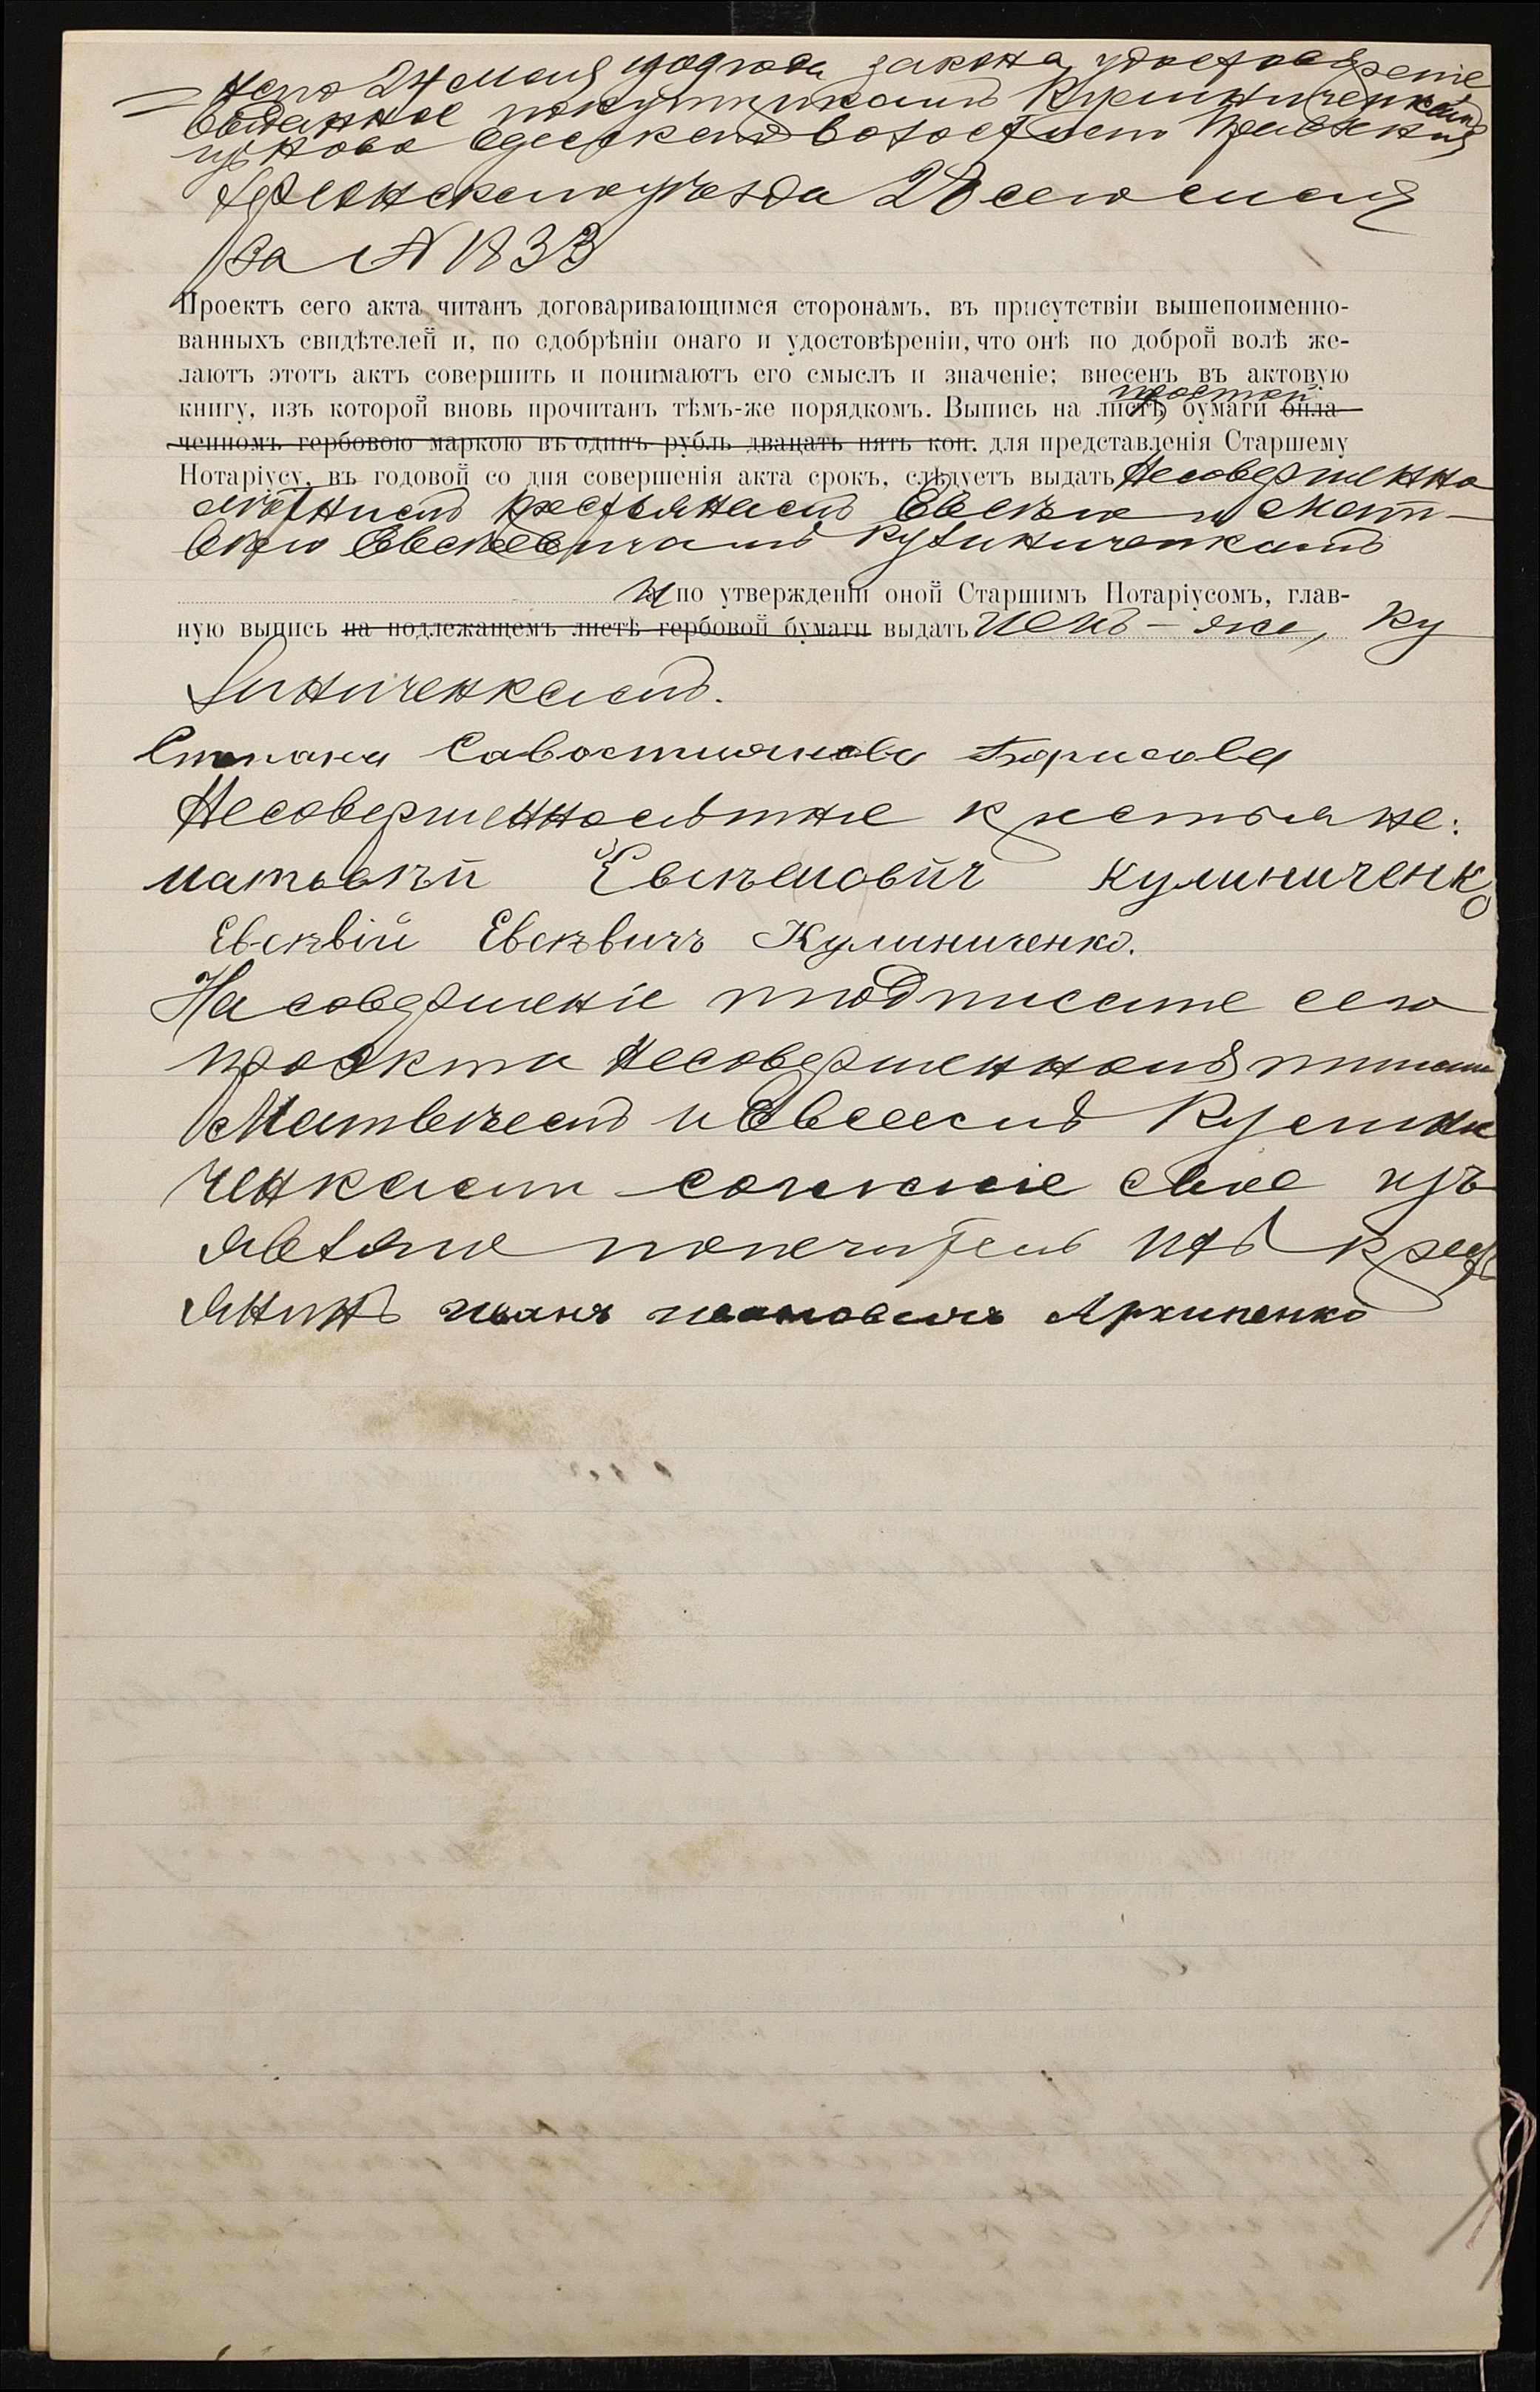 24 мая года закона удостовѣреніе
выданное покупщикамъ Кулиниченкамъ
волостнымъ Правленія
уѣзда 20 сего мая
за № 1833
Проектъ сего акта читанъ договаривающимся сторонамъ, въ присутствіи вышепоименно-
ванныхъ свидѣтелей и, по одобрѣніи онаго и удостовѣреніи, что онѣ по доброй волѣ же-
лаютъ этотъ актъ совершить и понимаютъ его смыслъ и значеніе; внесенъ въ актовую
простой
книгу, изъ которой вновь прочитанъ тѣмъ-же порядкомъ. Выпись на листѣ бумаги опла-
ченномъ гербовою маркою въ одинъ рубль двацать пять коп. для представленія Старшему
Нотаріусу, въ годовой со дня совершенія акта срокъ, слѣдуетъ выдать Несовершенно
лѣтнимъ крестьянамъ Евсѣю и Мат-
вѣю Евсѣевичамъ Кулиниченкамъ
и по утвержденіи оной Старшимъ Нотаріусомъ, глав-
ную выпись на подлежащемъ листѣ гербовой бумаги выдать имъ-же, Ку
линиченкамъ.
Степана Савостиянова Борисова
Несовершеннолѣтние крестьяне:
матьвѣй Евсѣмович кулиниченко
Евсѣвій Евсѣвичъ Кулиниченко.
На совершеніе и подписание сего
проэкта Несовершеннолѣтними
Матвѣемъ и Евсеемъ Кулини
ченками согласіе свое изъ
являю попечитель ихъ крест
янинъ иванъ ивановичъ Архипенко